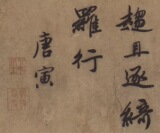 趦且逐綺
羅行
唐寅